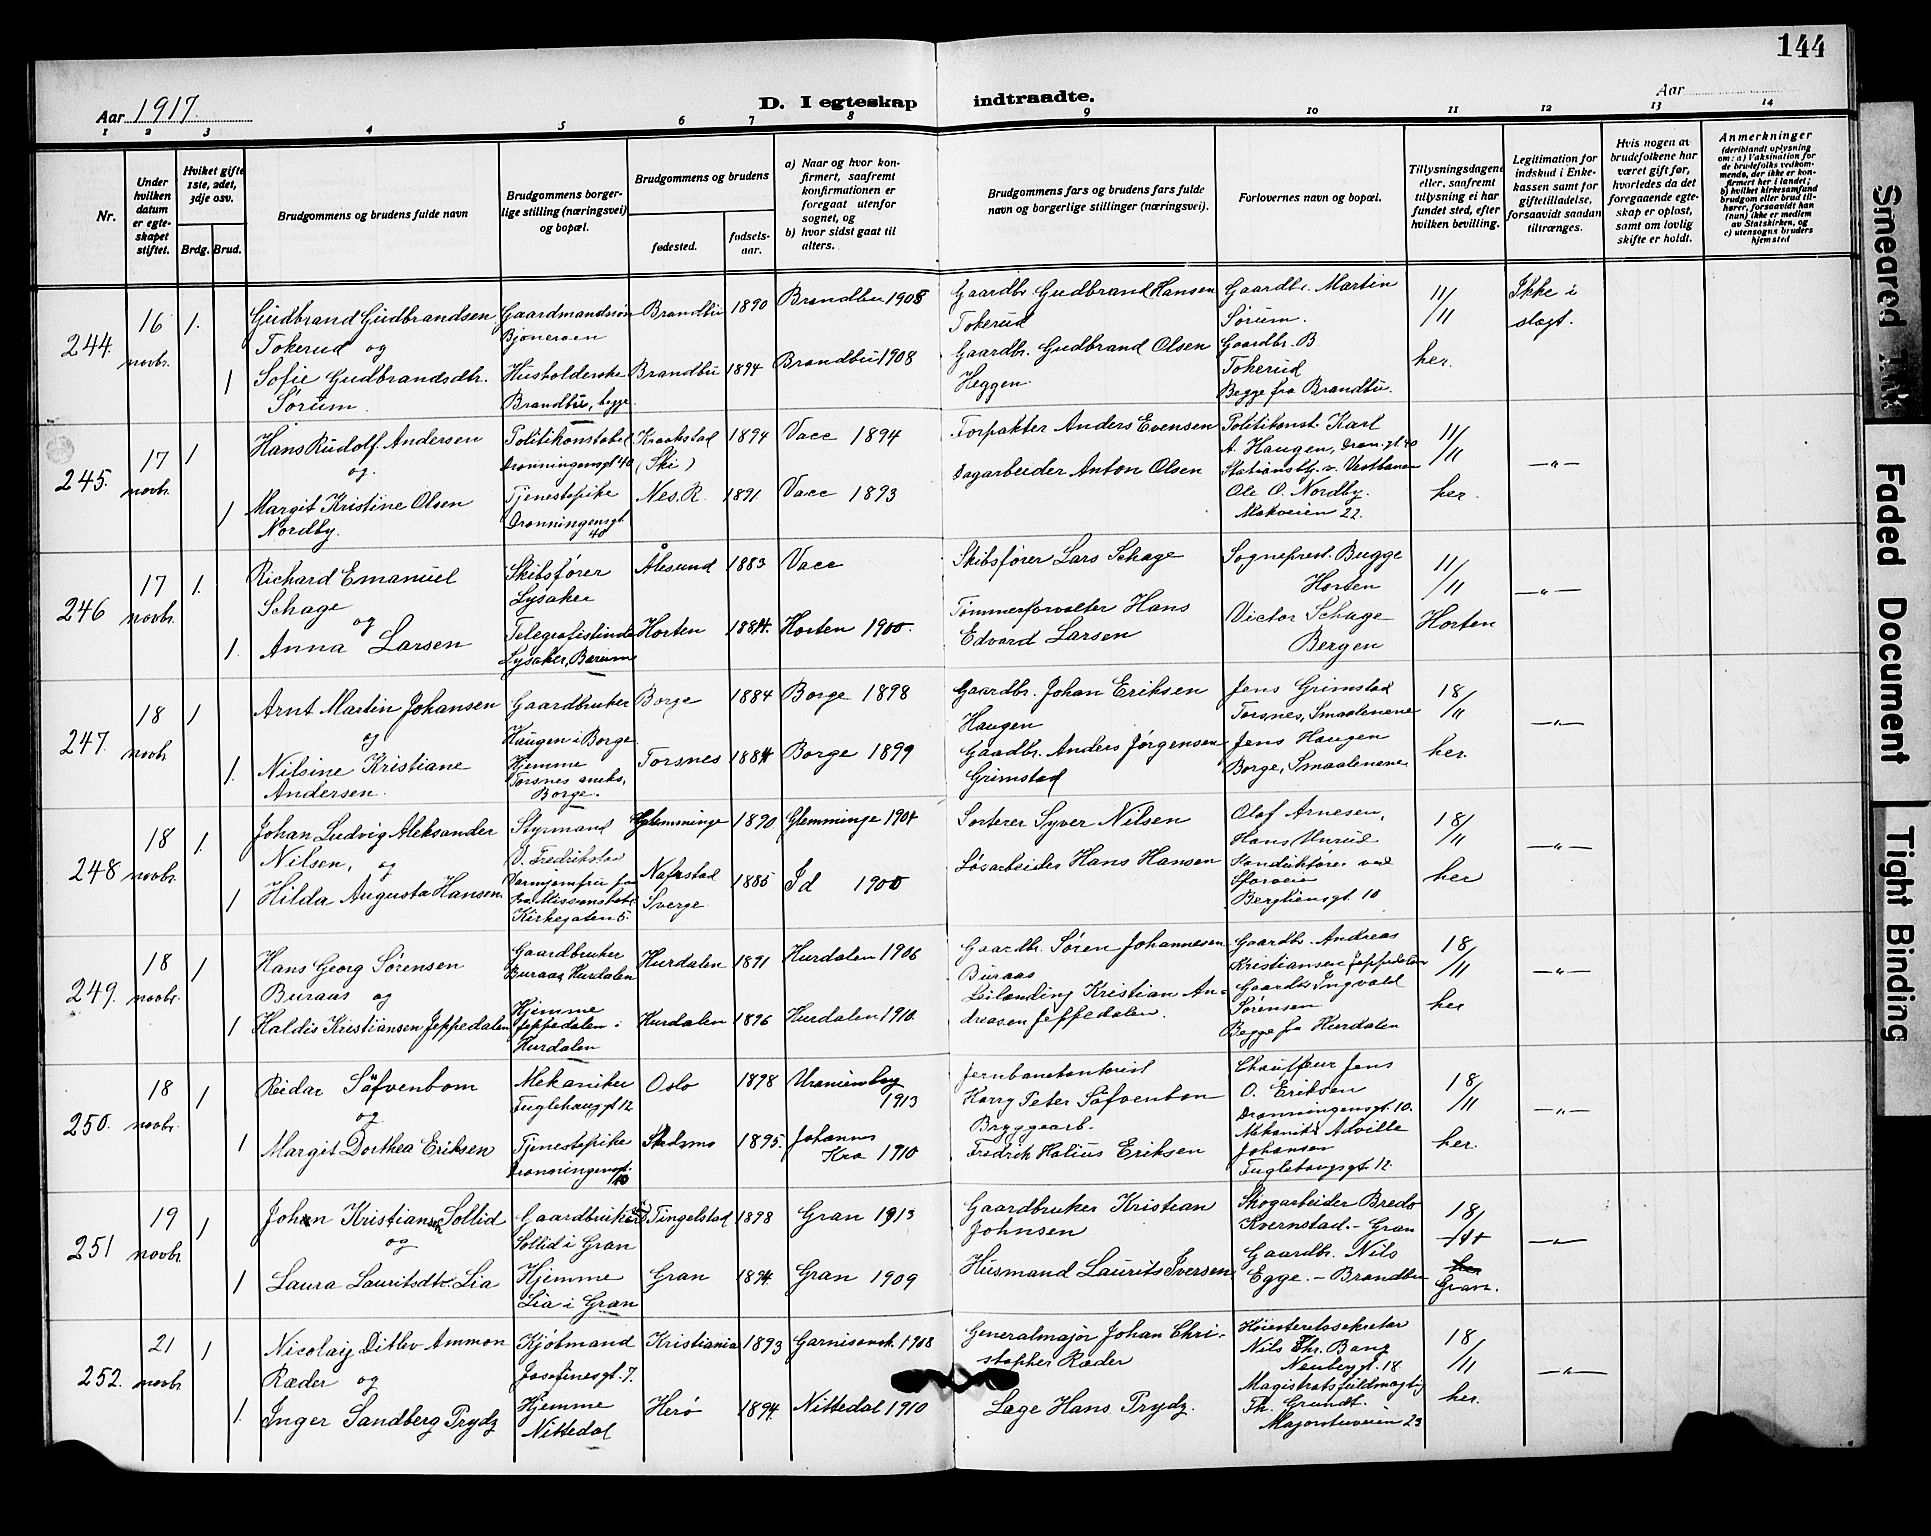 144
Aar 1917.
D. I egteskap indtraadte.
Aar
1 2 3 4 5 6 7 8 9 10 11 12 13 14
Nr.
Under hvilken datum er egteskapet stiftet.
Hvilket gifte 1ste, 2det, 3dje osv.
Brdg. Brud.
Brudgommens og brudens fulde navn
Brudgommens borgerlige stilling (næringsvei) og bopæl.
Brudgommens og brudens
fødested.
fødselsaar.
a) Naar og hvor konfirmert, saafremt konfirmationen er foregaat utenfor sognet, og
b) hvor sidst gaat til alters.
Brudgommens fars og brudens fars fulde navn og borgerlige stillinger (næringsvei).
Forlovernes navn og bopæl.
Tillysningsdagene eller, saafremt tillysning ei har fundet sted, efter hvilken bevilling.
Legitimation for indskud i Enkekassen samt for giftetilladelse, forsaavidt saadan tiltrænges.
Hvis nogen av brudefolkene har været gift før, hvorledes da det foregaaende egteskap er opløst, samt om lovlig skifte er holdt.
Anmerkninger
(deriblandt oplysning om: a) Vaksination for de brudefolks vedkommende, der ikke er konfirmert her i landet; b) hvilket kirkesamfund brudgom eller brud tilhører, forsaavidt han (hun) ikke er medlem av Statskirken, og c) utensogns bruders hjemsted
244. 16 novbr. 1. Gudbrand Gudbrandsen Tokerud og
Gaardmandssøn Bjoneroen
Brandbu 1890 Brandbu 1905
Gaardbr. Gudbrand Hansen Tokerud
Gaardbr. Martin Sørum.
11/11 her.
Ikke i slegt.
1 Sofie Gudbrandsdtr. Sørum.
Husholderske Brandbu, begge
Brandbu 1894 Brandbu 1908
Gaardbr. Gudbrand Olsen Heggen.
Gaardbr. B. Tokerud
Begge fra Brandbu.
245. 17 novbr. 1 Hans Rudolf Andersen og
Politikonstabel Dronningensgt 40
Kraakstad (Ski) 1894 Vacc 1894
Forpakter Anders Evensen
Politikonst. Karl A. Haugen, Dron.gt 40
11/11 her. —„—
1 Margit Kristine Olsen Nordby.
Tjenestepike Dronningensgt. 40
Nes. R. 1891. Vacc 1893
Dagarbeider Anton Olsen
Stationsbtj. v. Vestbanen Ole O. Nordby. Makveien 22.
246 17 novbr. 1. Richard Emanuel Schage og
Skibsfører Lysaker
Ålesund 1883 Vacc
Skibsfører Lars Schage
Sogneprest. Bugge Horten
11/11 Horten —„—
1. Anna Larsen
Telegrafistinde Lysaker, Bærum
Horten 1884. Horten 1900.
Tømmerforvalter Hans Edvard Larsen
Victor Schage Bergen
247. 18 novbr. 1 Arnt Martin Johansen og
Gaardbruker Haugen i Borge
Borge 1884 Borge 1898
Gaardbr. Johan Eriksen Haugen
Jens Grimstad Torsnes, Smaalenene
18/11 her. —„—
1. Nilsine Kristiane Andersen.
Hjemme Torsnes aneks, Borge.
Torsnes 1884 Borge 1899
Gaadbr. Anders Jørgensen Grimstad
Jens Haugen Borge, Smaalenene
248 18 novbr. 1. Johan Ludvig Aleksander Nilsen, og
Styrmand Fredrikstad
Glemminge 1890 Glemminge 1904
Sorterer Syver Nilsen
Olaf Arnesen,
18/11 her —„—
1 Hilda Augusta Hansen.
Kirkegaten 5.
Sverge 1885 Id 1900
Løsarbeider Hans Hansen
Hans Konduktører ved Sporveien Bergliensgt. 10
249. 18 novbr. 1 Hans Georg Sørensen Buraas og
Gaardbruker Buraas, Hurdalen
Hurdalen 1891 Hurdalen 1906
Gaardbr. Søren Johannesen Buraas
Gaardbr. Andreas Kristiansen Jeppedalen
18/11 her —„—
1 Haldis Kristiansen Jeppedalen
Hjemme Jeppedalen i Hurdalen
Hurdalen 1896 Hurdalen 1910.
Leilænding Kristian Andreasen Jeppedalen.
Gaardbr. Ingvald Sørensen
Begge fra Hurdalen
250. 18 novbr. 1 Reidar Säfvenbom og
Mekaniker Fuglehaugt 12
Oslo 1898 Uranienborg 1913
Jernbanekontorist Harry Peter Säfvenbom
Chauffeur Jens O. Eriksen Dronningensgt. 10.
18/11 her. —„—
1 Margit Dorthea Eriksen
Tjenestepike Dronningensgt. 10
Skedsmo 1895. Johannes Kra 1910
Bryggearb. Fredrik Halius Eriksen
Mekanik. Adville Johansen Fuglehaugsgt. 12.
251 19 novbr. 1 Johan Kristiansen Sollid og
Gaardbruker Sollid i Gran
Tingelstad 1898 Gran 1913
Gaardbruker Kristian Johnsen
Skogarbeider Bredo Kvernstad. - Gran
18/11 her Gran. —„—
1 Laura Lauritsdtr. Lia
Hjemme Lia i Gran
Gran 1894. Gran 1909
Husmand Laurits Iversen
Gaardbr. Nils Egge. - Brandbu
252. 21 novbr. 1 Nicolaij Ditlev Ammon Ræder og
Kjøbmand Josefinesgt. 7.
Kristiania 1893 Garnisonsk. 1908
Generalmajor Johan Christopher Ræder
Høiesteretssekretær Nils Chr. Bang Neubergt. 18
18/11 her. —„—
1. Inger Sandberg Prydz
Hjemme Nittedal
Herø 1894. Nittedal 1910
Læge Hans Prydz.
Magistratsfuldmægtig Th. Grundt. Majorstuveien 23
Smeared Ink
Faded Document
Tight Binding